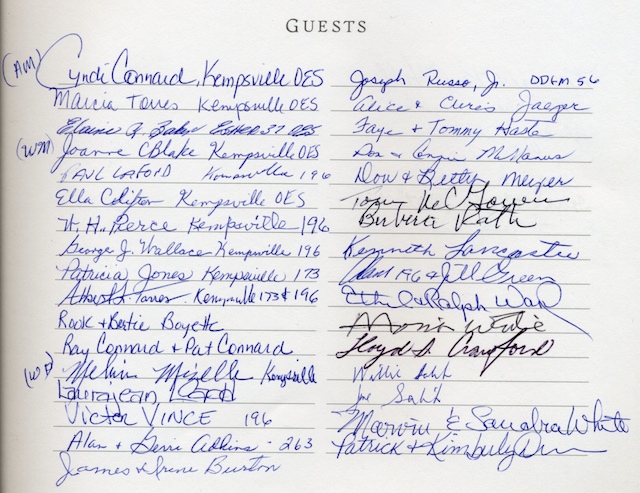 GUESTS
(AM) Cyndi Connard, Kempsville OES
Marcia Torres Kempsville OES
Elaine A. Baker Esther 37 OES
(WM) Joanne C Blake Kempsville OES
PAUL LAFORD Kempsville 196
Ella Clifton Kempsville OES
W. H. Pierce Kempsville 196
George J. Wallace Kempsville 196
Patricia Jones Kempsville 173
Albert Torres Kempsville 173 & 196
Rook & Bertie Boyette
Ray Connard & Pat Connard
Melvin Mizelle Kempsville
Laurajean
Victor VINCE 196
Alan & Gerri Adkins - 263
James & Irene Burton
Joseph Russo, Jr. DDGM 56
Alice & Chris Jaeger
Faye & Tommy Haste
Don & Connie McManus
Don & Betty Meyer
Tom McGowen
Barbara Rath
Kenneth Lancaster
196 & Jill Green
Ethel & Ralph
Floyd D. Crawford
Willie
Joe
Marvin & Sandra White
Patrick & Kimberly